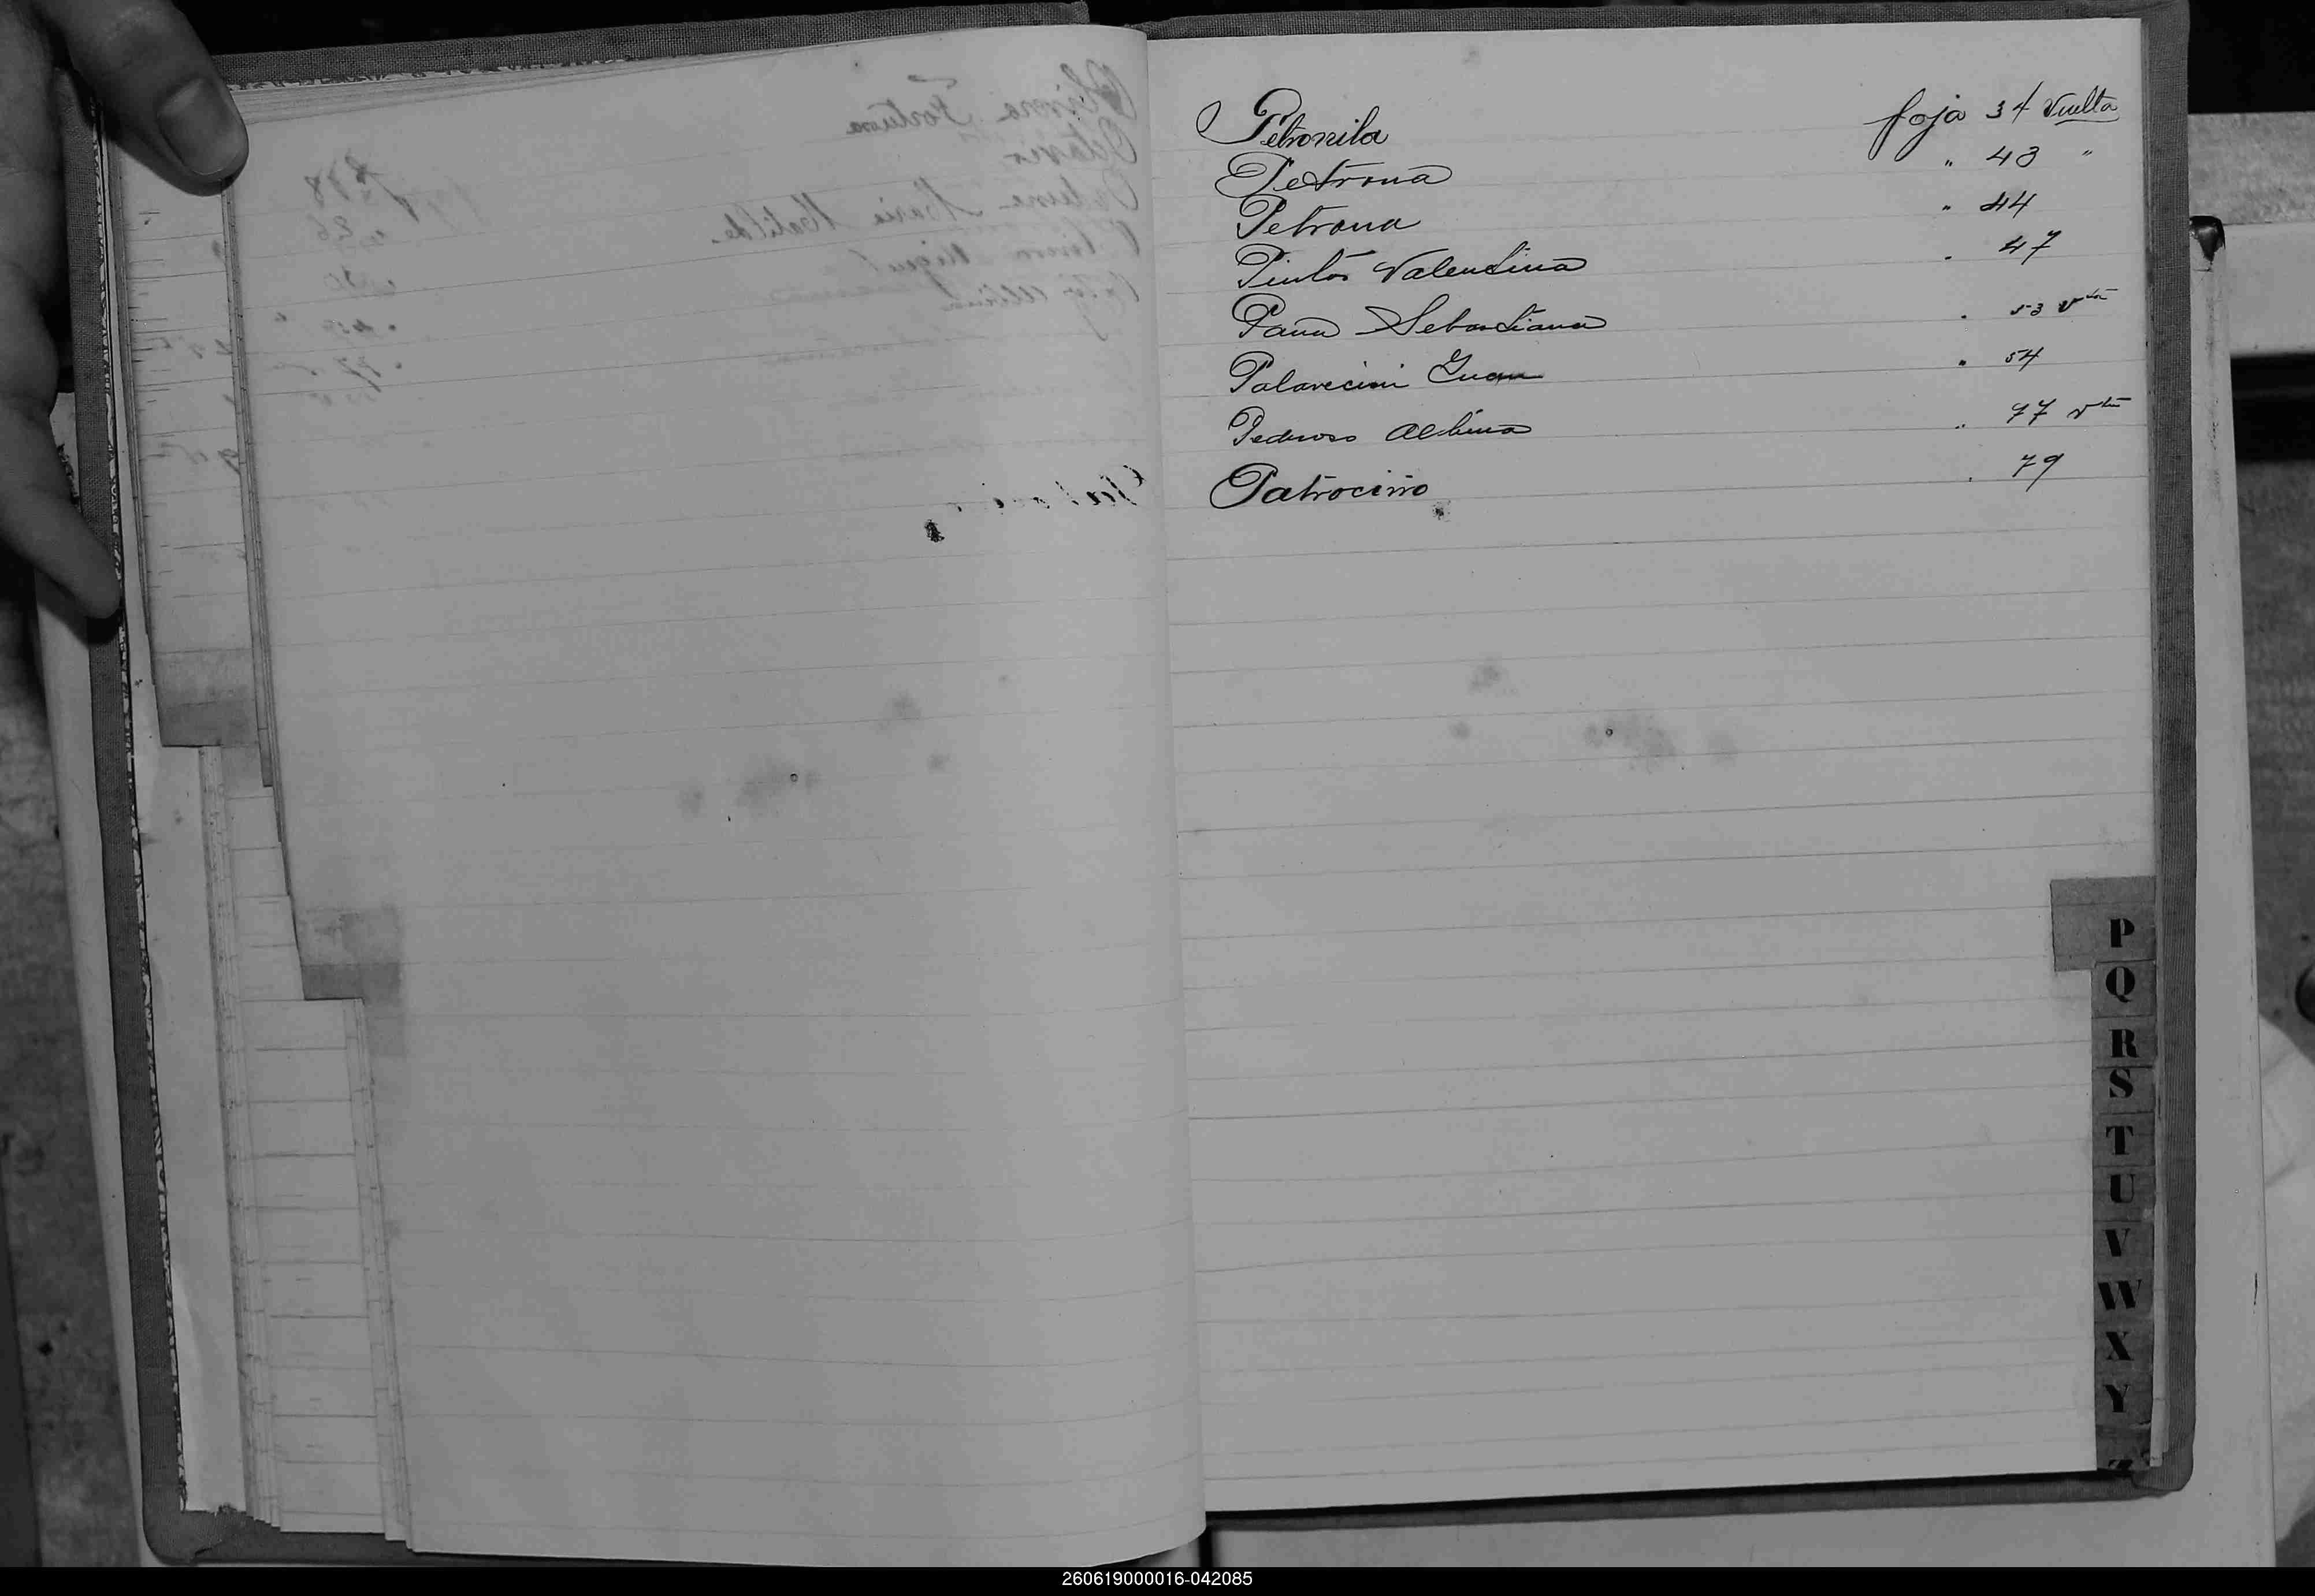 Petronila foja 34 Vuelta
Petrona " 43 "
Petrona " 44
Pintos Valentina " 47
Pana Sebastiana " 53 vta
Palavecini Juan " 54
Pedroso Albina " 77 vta
Patrocinio " 79
P
Q
R
S
T
U
V
W
X
Y
Z
260619000016-042085